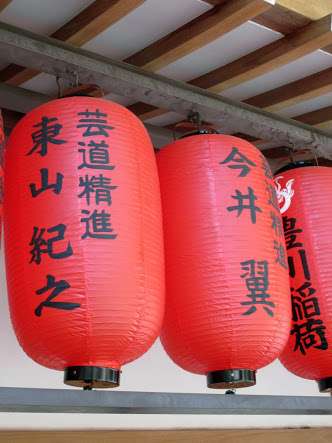 芸道精進
東山紀之
芸道精進
今井翼
豊川稲荷